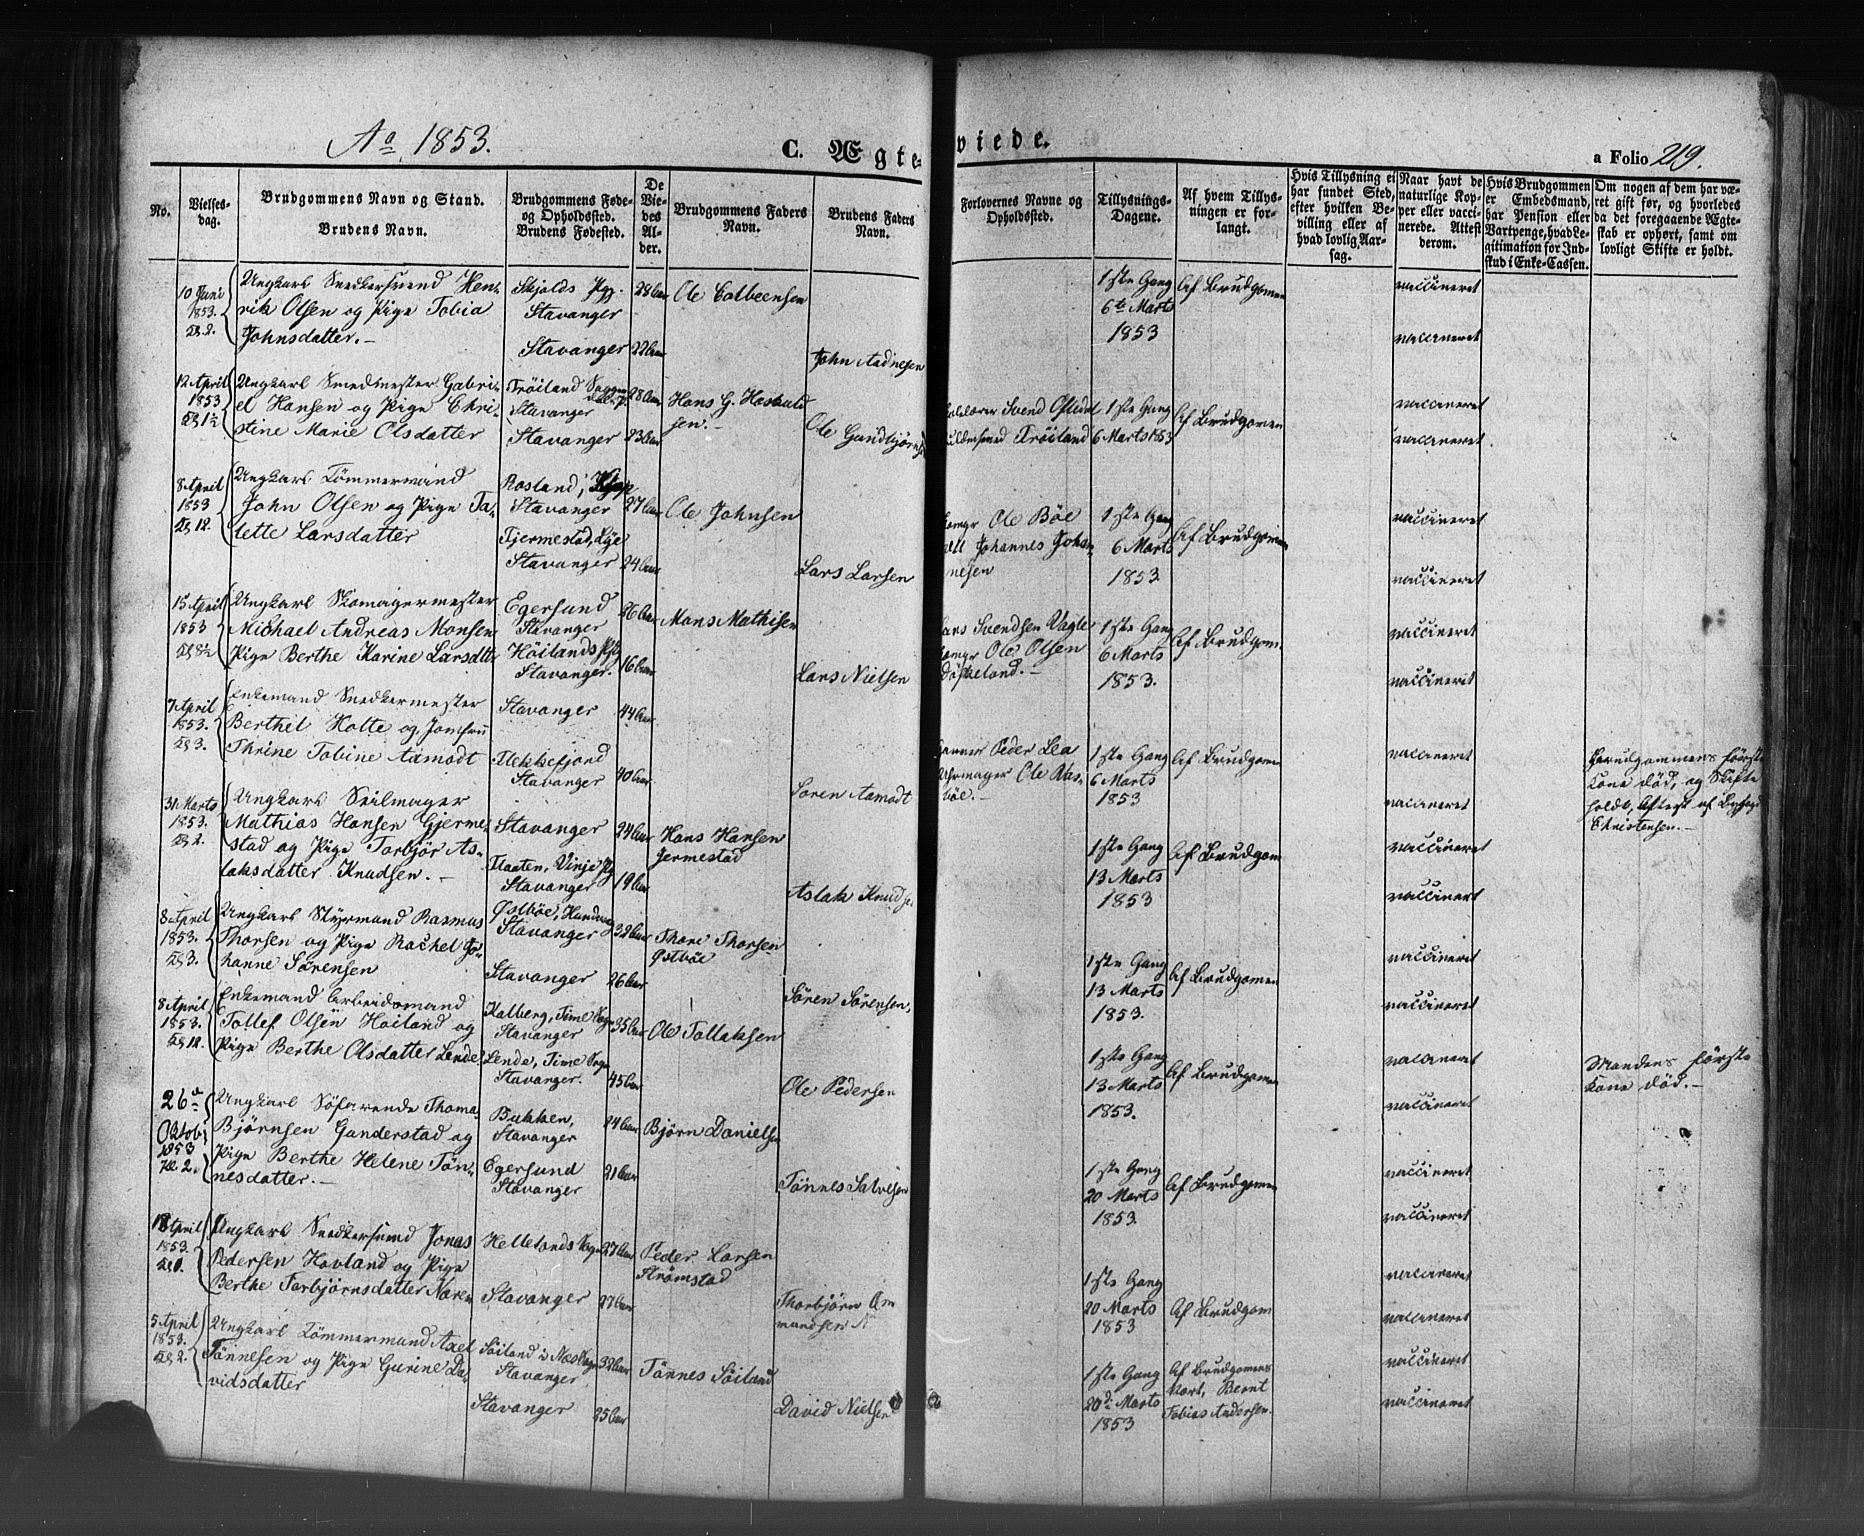 Ao 1853.
C. Ægte-
viede.
a Folio 219.
No.
Vielses-
dag.
Brudgommens Navn og Stand.
Brudens Navn.
Brudgommens Føde-
og Opholdssted.
Brudens Fødested.
De
Vie-
des
Al-
der.
Brudgommens Faders
Navn.
Brudens Faders
Navn.
Forlovernes Navne og
Opholdssted.
Tillysnings-
Dagene.
Af hvem Tillys-
ningen er for-
langt.
Hvis Tillysning ei
har fundet Sted,
efter hvilken Be-
villing eller af
hvad lovlig Aar-
sag.
Naar havt de
naturlige Kop-
per eller vacci-
nerede. Attest
derom.
Hvis Brudgommen
er Embedsmand,
har Pension eller
Vartpenge, hvad Le-
gitimation for Ind-
skud i Enke-Cassen.
Om nogen af dem har væ-
ret gift før, og hvorledes
da det foregaaende Ægte-
skab er ophørt, samt om
lovligt Skifte er holdt.
10 Juni
1853.
Kl. 2.
Ungkarl Snedkersvend Hen-
rik Olsen og Pige Tobia
Johnsdatter.-
Skjolds Pgj.
Stavanger
Stavanger
28 Aar
22 Aar
Ole
John Aadnesen
1ste Gang
6te Marts
1853
Af Brudgomen
vaccineret
vaccineret
12 April
1853
Kl. 1½
Ungkarl Smedmester Gabri-
el Hansen og Pige Chri-
stine Marie Olsdatter
Tröiland
Stavanger
Stavanger
28 Aar
23 Aar
Hans G.
sen.-
Ole Gundbjörns
Svend
Tröiland
1ste Gang
6 Marts 1853
Af Brudgomen
vaccineret
vaccineret
8 April
1853
Kl. 12.
Ungkarl Tömmermand
John Olsen og Pige Ta-
lette Larsdatter
Rosland, Klep
Stavanger
Tjermestad, Lye
Stavanger
27 Aar
24 Aar
Ole Johnsen
Lars Larsen
Ole Böe
Johannes Johan
nesen
1ste Gang
6 Marts
1853.
Af Brudgomen
vaccineret
vaccineret
15 April
1853
Kl. 8½
Ungkarl Skomagermester
Michael Andreas Monsen
Pige Berthe Karine Larsdtter
Egersund
Stavanger
Höilands Pgj
Stavanger.
26 Aar
16 Aar
Mons Mathisen
Lars Nielsen
Lars Svendsen Vagle
Ole Olsen
1ste Gang
6 Marts
1853.
Af Brudgom.
vaccineret
vaccineret
7 April
1853.
Kl. 3.
Enkemand Snedkermester
Berthil Holte og Jomfru
Thrine Tobine Aamodt
Stavanger
Flekkefjord
Stavanger
44 Aar
40 Aar
Sören Aamodt
Peder Lea
Uhrmager Ole
böe.-
1ste Gang
6 Marts
1853
Af Brudgomen
vaccineret
vaccineret
Brudgommens förste
Kone död, og Skifte
holdt, Attest af
Christensen.-
31 Marts
1853.
Kl. 2.
Ungkarl Seilmager
Mathias Hansen Gjerme-
stad og Pige Torbjör As-
laksdatter Knudsen.-
Stavanger
Flaaten, Vinje Pg
Stavanger
24 Aar
19 Aar
Hans Hansen
Jermestad
Aslak Knudsen
1ste Gang
13 Marts
1853
Af Brudgom
vaccineret
vaccinert
8 April
1853.
Kl. 3.
Ungkarl Styrmand Rasmus
Thorsen og Pige Rachel Jo-
hanne Sörensen
Østböe,
Stavanger
Stavanger
32 Aar
26 Aar
Thore Thorsen
Østböe
Sören Sörensen,
1ste Gang
13 Marts
1853.
Af Brudgomen
vaccineret
vaccineret
8 April
1853.
Kl. 12.
Enkemand Arbeidsmand
Tollef Olsen Höiland og
Pige Berthe Olsdatter Lende
Kalberg, Time Sogn
Stavanger
Lende, Time Sogn
Stavanger.
35 Aar
45 Aar
Ole Tollaksen
Ole Pedersen
1ste Gang
13 Marts
1853.
Af Brudgomen
vaccineret
vaccineret
Mandens förste
Kone död.-
26de
Oktob
1853
Kl. 2.
Ungkarl Söfarende Thomas
Björnsen Gunderstad og
Pige Berthe Helene Tön-
nesdatter.-
Bakken,
Stavanger
Egersund
Stavanger
24 Aar
21 Aar
Björn Danielsen
Tönnes Salvesen
1ste Gang
20 Marts
1853.
Af Brudgomen
vaccineret
vaccineret
18 April
1853.
Ungkarl Snedkersvend Jonas
Pedersen Hovland og Pige
Berthe Torbjörnsdatter
Hellelands Sogn
Stavanger
27 Aar
27 Aar
Peder Larsen
Strömstad
Thorbjörn
mundsen
1ste Gang
20 Marts
1853
Af Brudgom
vaccineret
vaccineret
5 April
1853.
Kl. 2.
Ungkarl Tömmermand Axel
Tönnesen og Pige Gurine Da-
vidsdatter
Söiland i Næs Sogn
Stavanger
Stavanger
32 Aar
25 Aar
Tönnes Söiland
David Nielsen
1ste Gang
20de Marts
1853
Af Brudgomens
Bernt
Tobias Andersen.
vaccineret
vaccineret